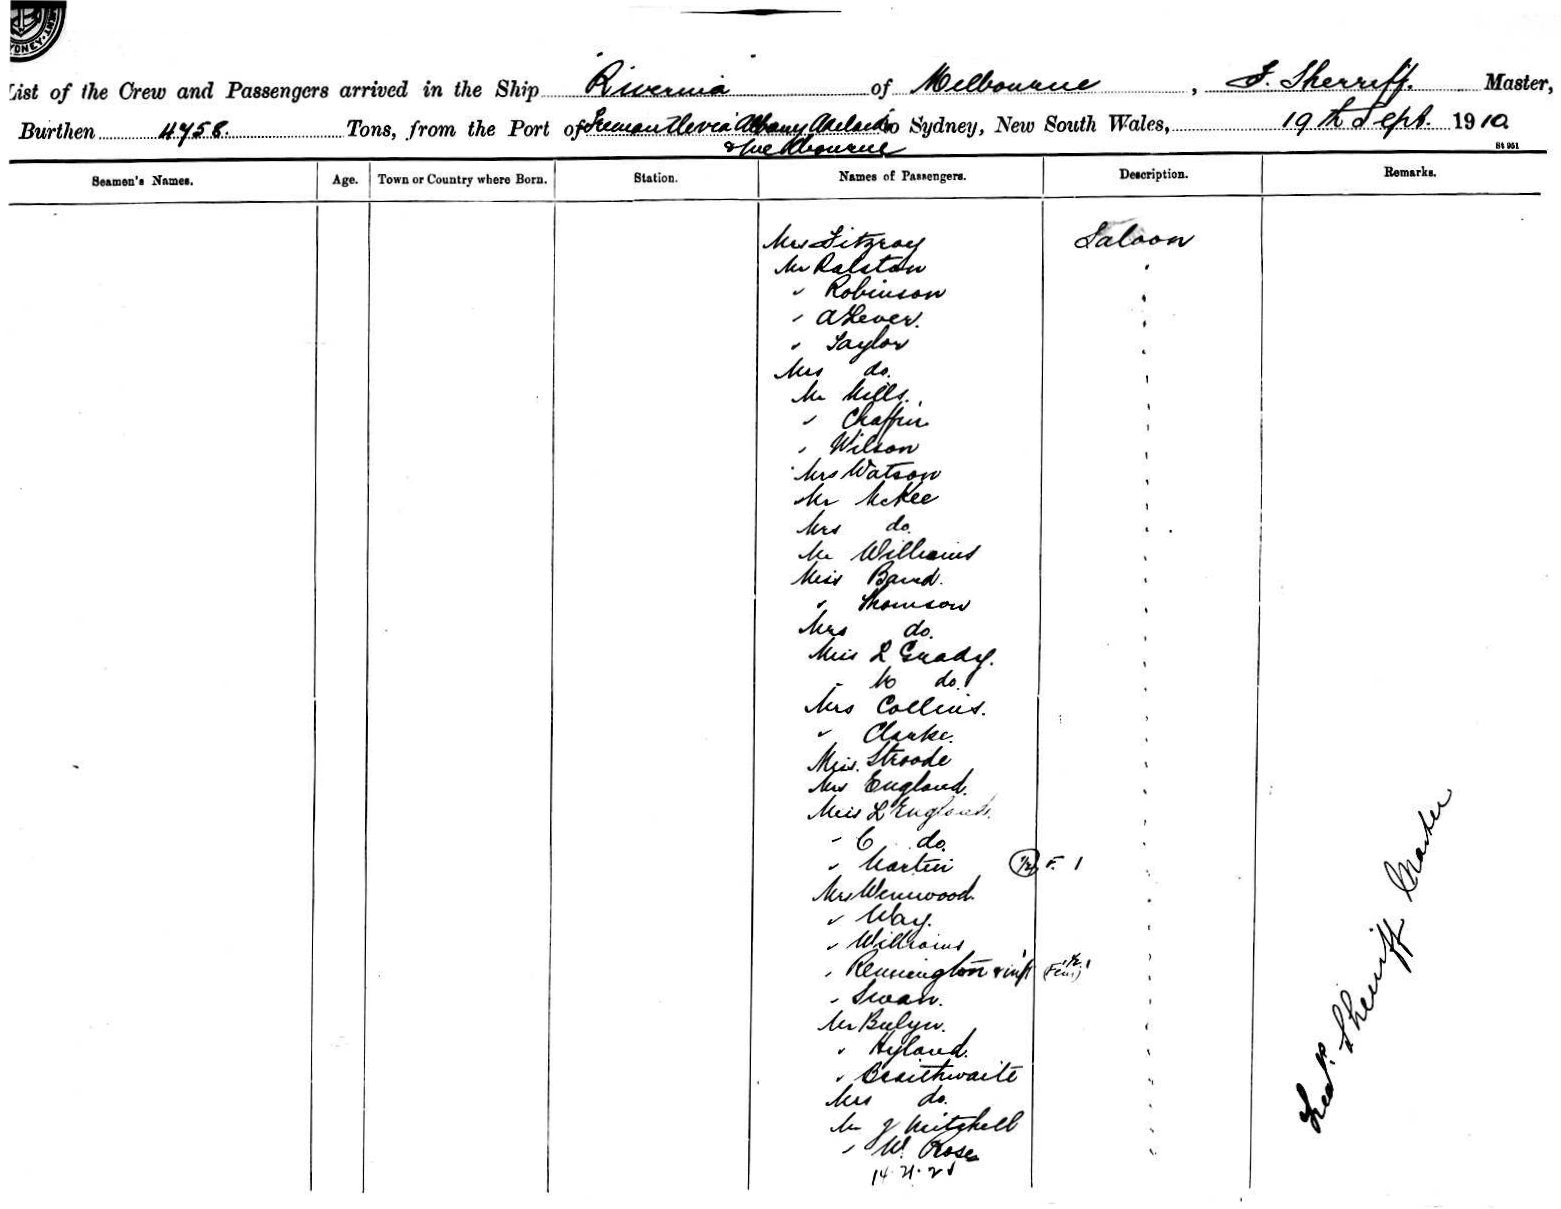 SYDNEY
List of the Crew and Passengers arrived in the Ship Riverina of Melbourne, F. Sherriff. Master,
Burthen 4758. Tons, from the Port of Fremantle via Albany Adelaide to Sydney, New South Wales, 19th Sept. 1910
& Melbourne
St 951
Seamen's Names. Age. Town or Country where Born. Station. Names of Passengers. Description. Remarks.
Mrs Fitzroy Saloon
Mr Ralston "
" Robinson "
" A Lever. "
" Taylor "
Mrs do. "
Mr Mills. "
" Chaffin "
" Wilson "
Mrs Watson "
Mr McKee "
Mrs do. "
Mr Williams "
Miss Baird. "
" Thomson "
Mrs do. "
Miss L Grady. "
" M do. "
Mrs Collins. "
" Clarke. "
Miss. Stroode "
Mrs England. "
Miss L England. "
" C do. "
" Martin 1/2 F. 1 "
Mrs Winwood. "
" Way. "
" Williams "
" Rennington & inft 1/2 "
" Swan. "
Mr Bulyn. "
" Hyland. "
" Braithwaite "
Mrs do. "
Mr J Mitchell "
" W. Rose "
14. 21. 2
Fredk. Sherriff Master